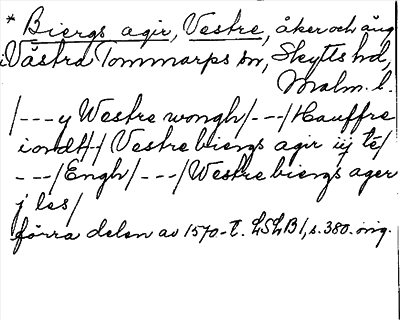 * Biergs agir, Vestre, åker och äng
i Västra Tommarps sn, Skytts hd,
Malm. l.
/---y Westre wongh/---/Hauffre
iordt/-/Vestre biergs agir iij té/
---/Engh/---/Westre biergs ager
j les/
förra delen av 1570-t. LSLB 1, s. 380. orig.